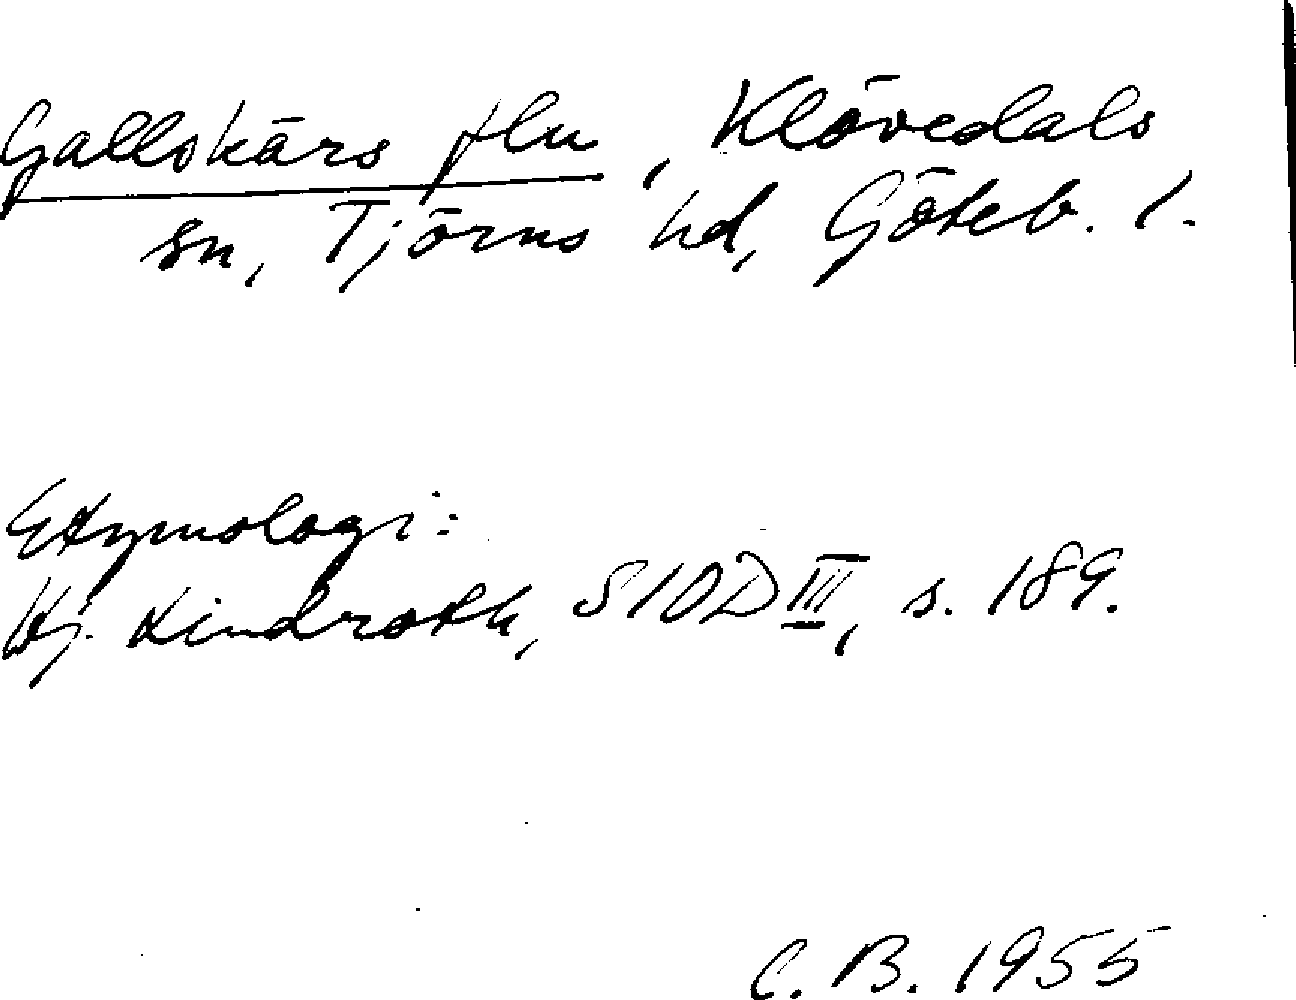 Gallskärs flu, Klövedals
sn, Tjörns hd, Göteb. l.
Etymologi:
Hj. Lindroth, SIOD III, s. 189.
C. B. 1955